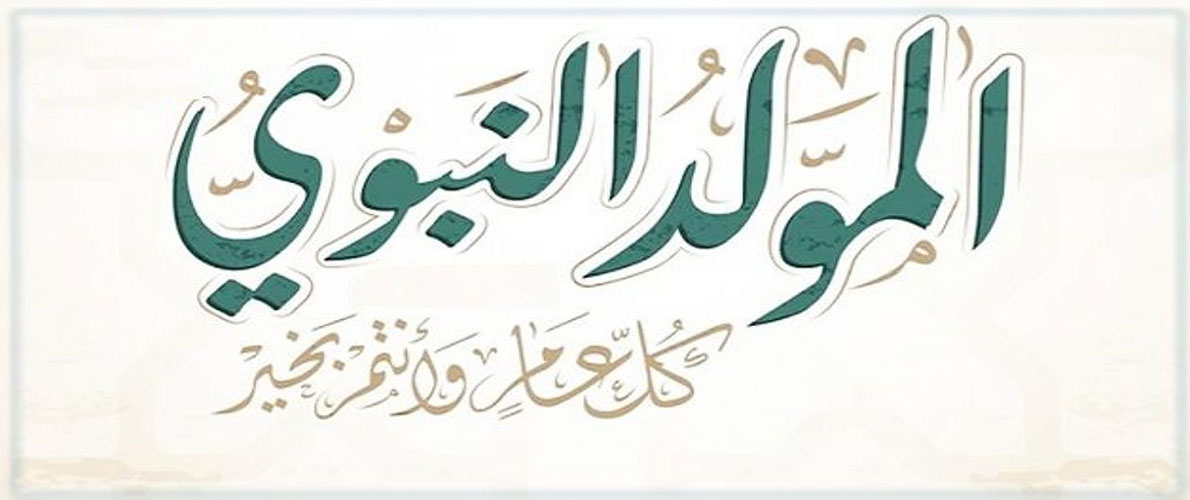 المَولِدُ النَّبَوْيُّ
كُلّ عَامٍ وَأَنْتُمْ بِخَيْر